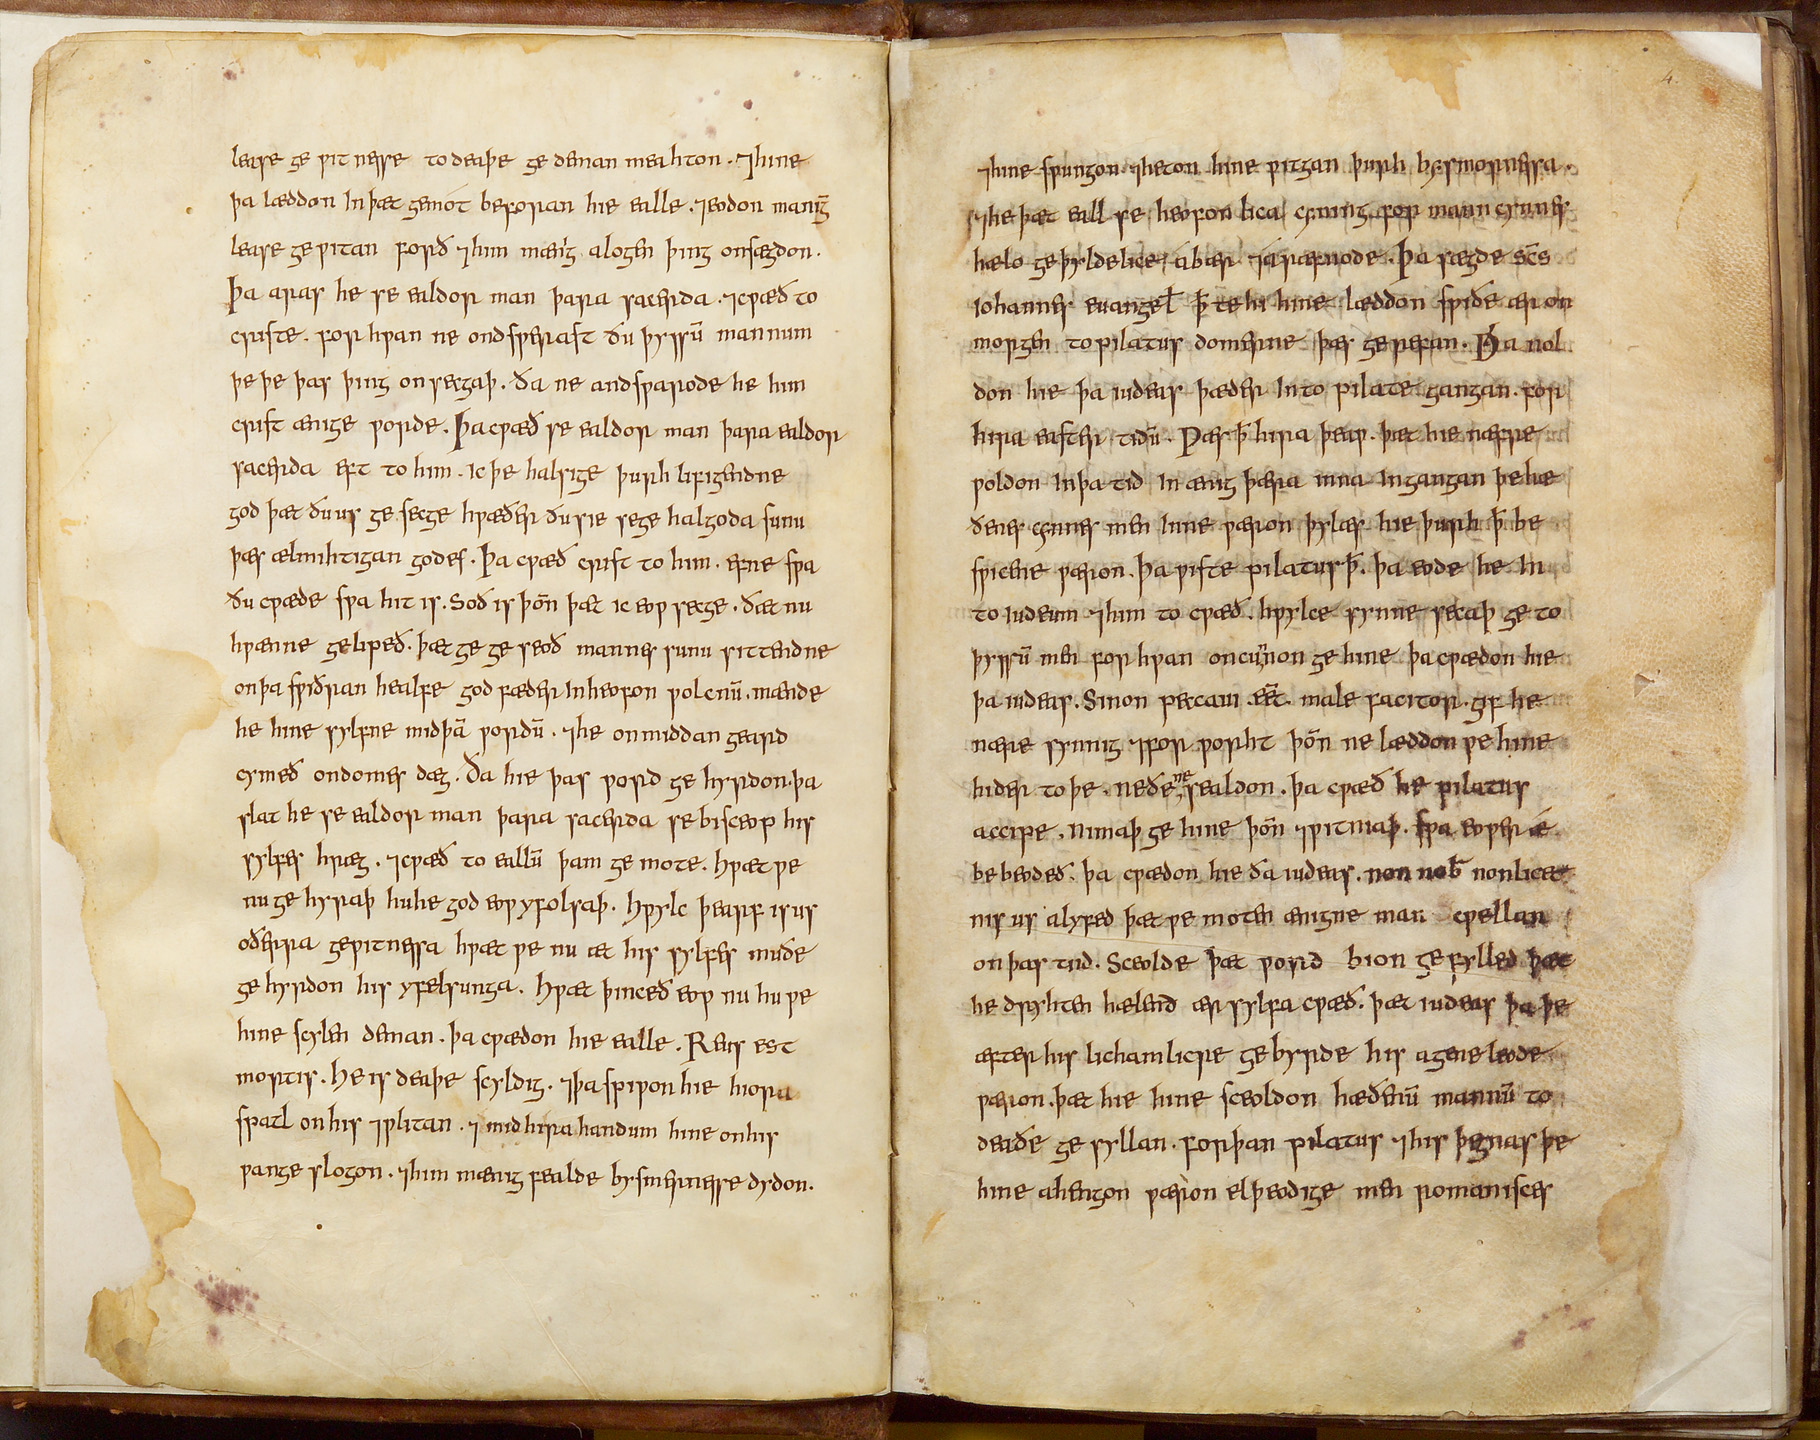 lease ge ƿitnesse to deaþe ge deman meahton · ⁊ hine
þa læddon In þæt gemót beforan hie ealle · ⁊ eodon manig̅
lease ge ƿitan forð ⁊ him mænig alogen þing onsægdon ·
Þa aras he se ealdor man þara sacerda · ⁊ cƿæð to
criste · for hƿan ne ondsƿerast ðu þyssū mannum
þe þe þas þing on secgaþ · ða ne andsƿarode he him
crist ænige ƿorde · Þa cƿæð se ealdor man þara ealdor
sacerda eft to him · ic þe halsige þurh lifigendne
god þæt ðu us ge secge hƿæðer ðu sie se gehalgoda sunu
þæs ælmihtigan godes · Þa cƿæð crist to him · efne sƿa
ðu cƿæde sƿa hit is · Soð is þōn þæt ic eoƿ secge · ðæt nu
hƿænne geliƿeð · þæt ge ge seoð mannes sunu sittendne
on þa sƿiðran healfe god fæder In heofon ƿolcnū · mænde
he hine sylfne mid þā ƿordū · ⁊ he on middan geard
cymeð on domes dæg · Ða hie þas ƿord ge hyrdon · þa
slat he se ealdor man þara sacerda se bisceop his
sylfes hræg · ⁊ cƿæð to eallū þam ge mote · Hƿæt ƿe
nu ge hyraþ hu he god eoƿ yfolsaþ · Hƿylc þearf is us
oðerra geƿitnessa hƿæt ƿe nu æt his sylfes muðe
ge hyrdon his yfelsunga · Hƿæt þinceð eoƿ nu hu ƿe
hine scylen deman · þa cƿædon hie ealle · Reus est
mortis · He is deaþe scyldig · ⁊ þa spiƿon hie hiora
spatl on his ⁊ƿlitan · ⁊ mid hira handum hine on his
ƿange slogon · ⁊ him mænig fealde bysmernesse dydon ·
⁊ hine sƿungon ⁊ heton hine ƿitgan þurh bysmornessa ·
⁊ he þæt eall se heofon lica cyning for mann cynnes
hælo geþyldelice ábær ⁊ áræfnode · Þa sægde sc̅s
Iohannes euangel̅ þ̅te hi hine læddon sƿiðe ær on
morgen to pilatus domerne þæs gerefan · Þa nol
don hie þa iudeas þæder In to pilate gangan · for
hira easter tidū · Ƿæs þ̅ hira þeaƿ · þæt hie næfre
ƿoldon In þa tid In ænig þæra inna Ingangan þe hæ
ðenes cynnes men Inne ƿæron þylæs hie þurh þ̅ be
smitene ƿæron · Þa ƿiste pilatus þ̅ · þa eode he In
to iudeum ⁊ him to cƿæð · hƿylce synne secaþ ge to
þyssū men for hƿan oncunnon ge hine þa cƿædon hie
þa iudeas · Sinon peccaui eēt male facitor · gif he
nære synnig ⁊ for ƿorht þōn ne læddon ƿe hine
hider to þe · ne ðe ne sealdon · þa cƿæð he pilatus
accipe · nimaþ ge hine þōn ⁊ ƿitniaþ · sƿa eoƿer ǽ
be beodeð · þa cƿædon hie ða iudeas · non nob̅ non licet
nis us alyfed þæt ƿe moten ænigne man cƿellan
on þas tiid · Sceolde þæt ƿord bion gefylled þæt
he dryhten hælend ær sylfa cƿæð · þæt iudeas þa þe
æfter his lichamlicre gebyrde his agene leode
ƿæron · þæt hie hine sceoldon hæðenū mannū to
deaðe ge syllan · for þan pilatus ⁊ his þegnas þe
hine ahengon ƿæron elþeodige men romanisces